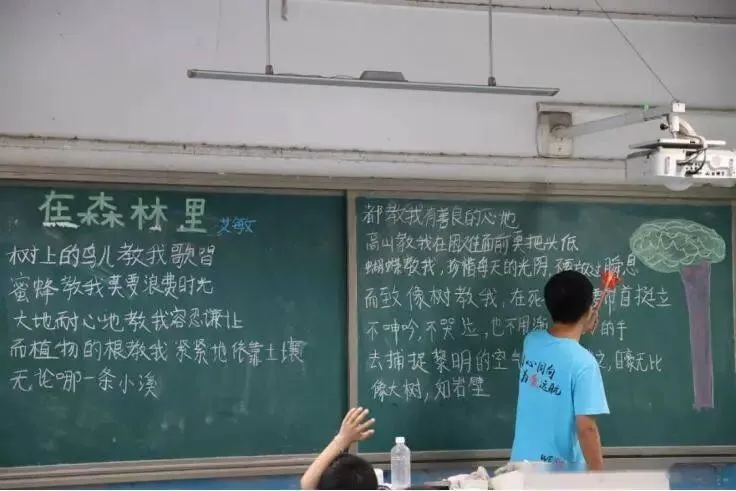 在森林里
艾敏
树上的鸟儿教我歌唱
蜜蜂教我莫要浪费时光
大地耐心地教我容忍谦让
而植物的根教我紧紧地依靠土壤
无论哪一条小溪
都教我有善良的心地
高山教我在困难面前莫把头低
蝴蝶教我,珍惜每天的光阴,
瞬息
而致像树教我,在死
首挺立
不呻吟,不哭
,也不用
的手
去捕捉黎明的空气
之,
无比
像大树,如岩壁
心同向
为爱远航
WE